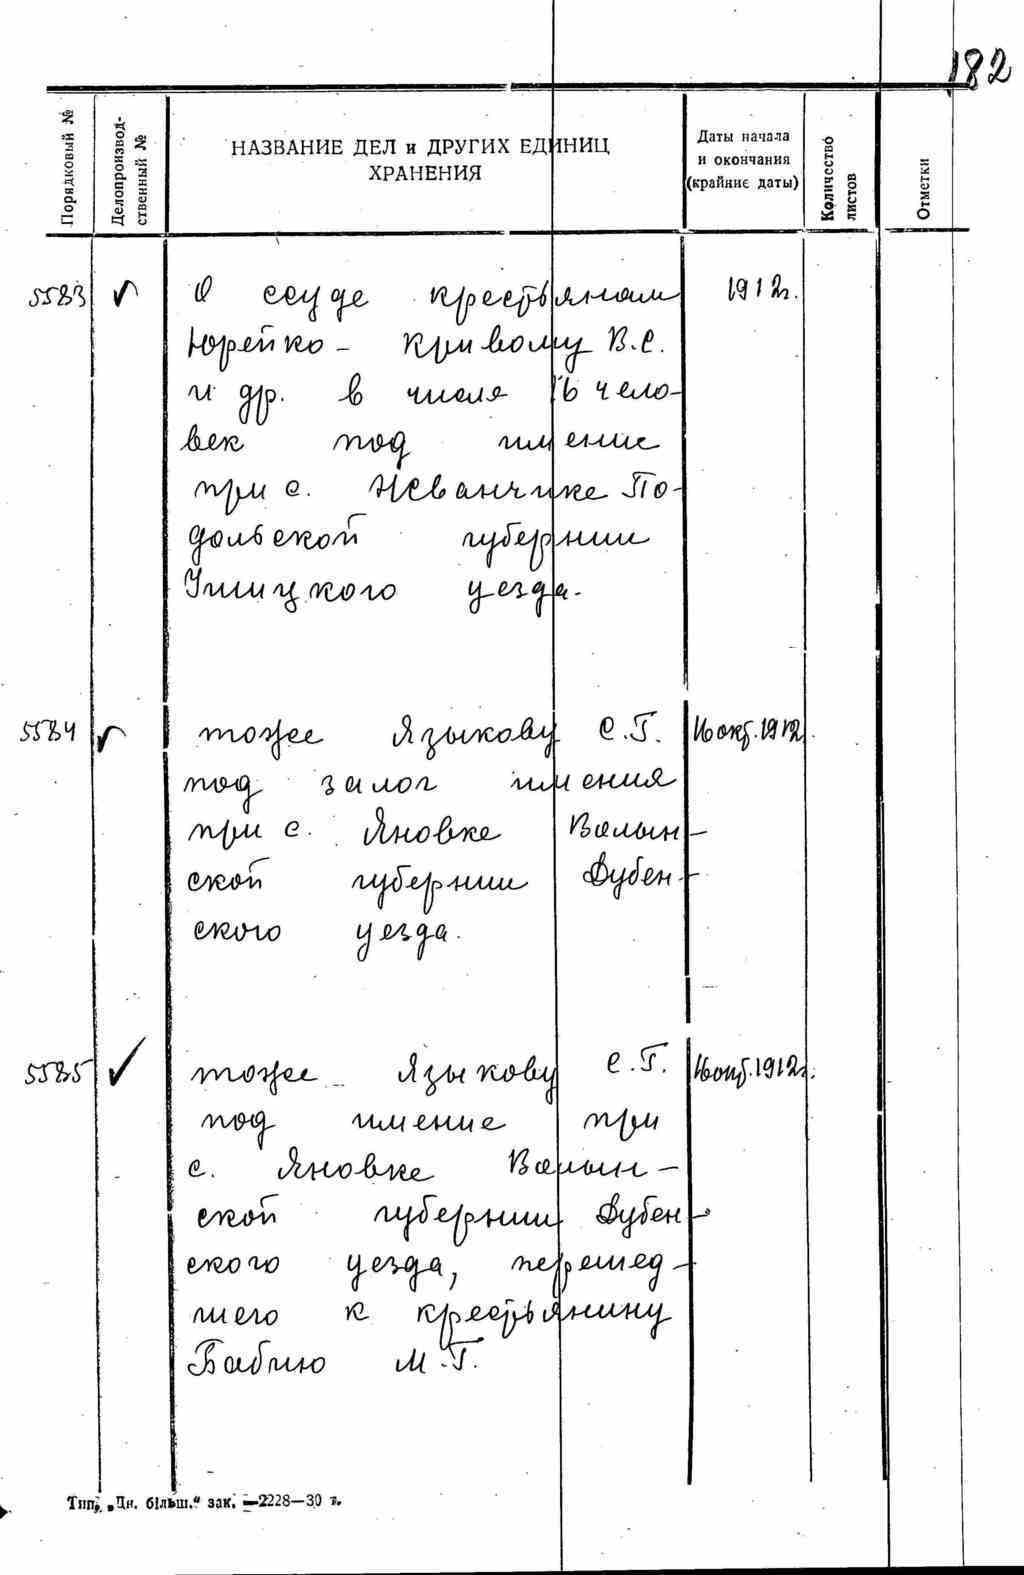 182
Порядковый №
Делопроизвод-
ственный №
НАЗВАНИЕ ДЕЛ и ДРУГИХ ЕДИНИЦ
ХРАНЕНИЯ
Даты начала
и окончания
(крайние даты)
Количество
листов
Отметки
5583 О ссуде крестьянам 1912г.
Юрейко - Кривому В.С.
и др. в числе 16 чело-
век под имение
при с. Иванчике По-
дольской губернии
Ушицкого уезда.
5584 тоже Языкову С.Г. 16 окт. 1912
под залог имения
при с. Яновке Волын-
ской губернии Дубен-
ского уезда.
5585 тоже Языкову С.Г. 16 окт. 1912г.
под имение при
с. Яновке Волын-
ской губернии Дубен-
ского уезда, перешед-
шего к крестьянину
Бабию М.Г.
Тип. „Дн. більш." зак. —2228—30 т.